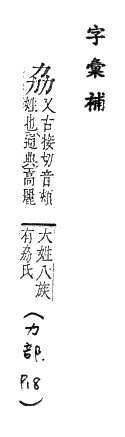 字彙補
劦
又古接切音頰
姓也通典高麗
大姓八族
有劦氏
(力部. P18)